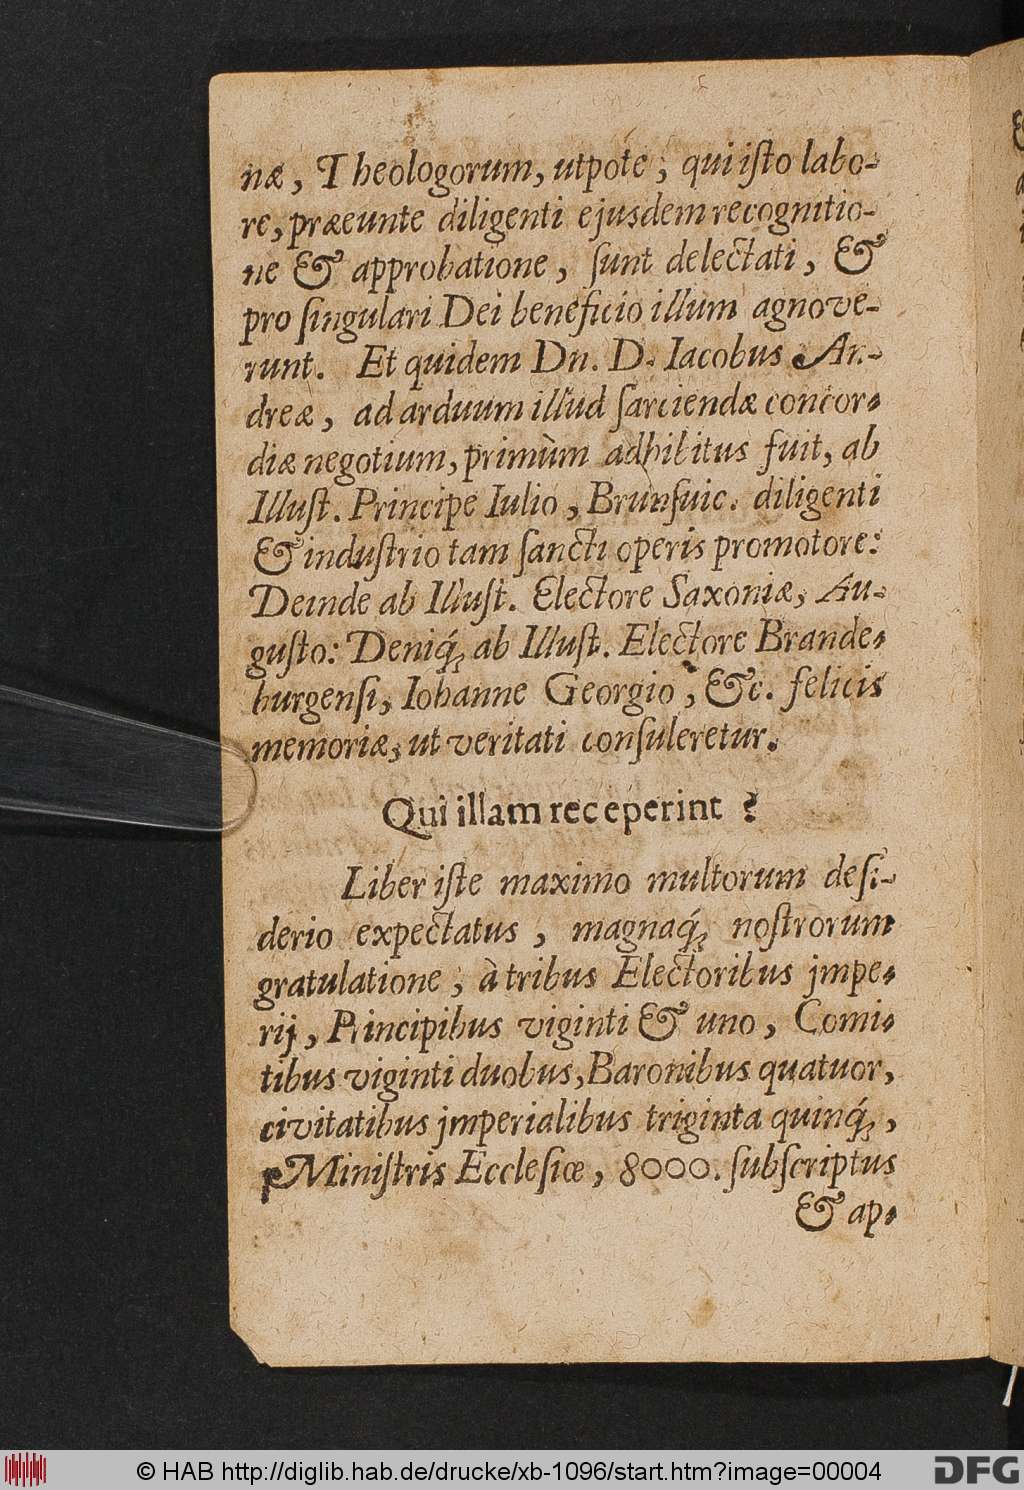 næ, Theologorum, utpote, qui iſto labo-
re, præeunte diligenti ejusdem recognitio-
ne & approbatione, ſunt delectati, &
pro ſingulari Dei beneficio illum agnove-
runt. Et quidem Dn. D. Iacobus An-
dreæ, ad arduum illud ſarciendæ concor-
diæ negotium, primùm adhibitus fuit, ab
Illuſt. Principe Iulio, Brunſuic. diligenti
& induſtrio tam ſancti operis promotore:
Deinde ab Illuſt. Electore Saxoniæ, Au-
guſto: Deniq́; ab Illuſt. Electore Brande-
burgenſi, Iohanne Georgio, &c. felicis
memoriæ, ut veritati conſuleretur.
Qui illam receperint?
Liber iſte maximo multorum deſi-
derio expectatus, magnaq́; noſtrorum
gratulatione, à tribus Electoribus jmpe-
rij, Principibus viginti & uno, Comi-
tibus viginti duobus, Baronibus quatuor,
civitatibus jmperialibus triginta quinq́;,
Miniſtris Eccleſiæ, 8000. ſubſcriptus
& ap-
© HAB http://diglib.hab.de/drucke/xb-1096/start.htm?image=00004
DFG